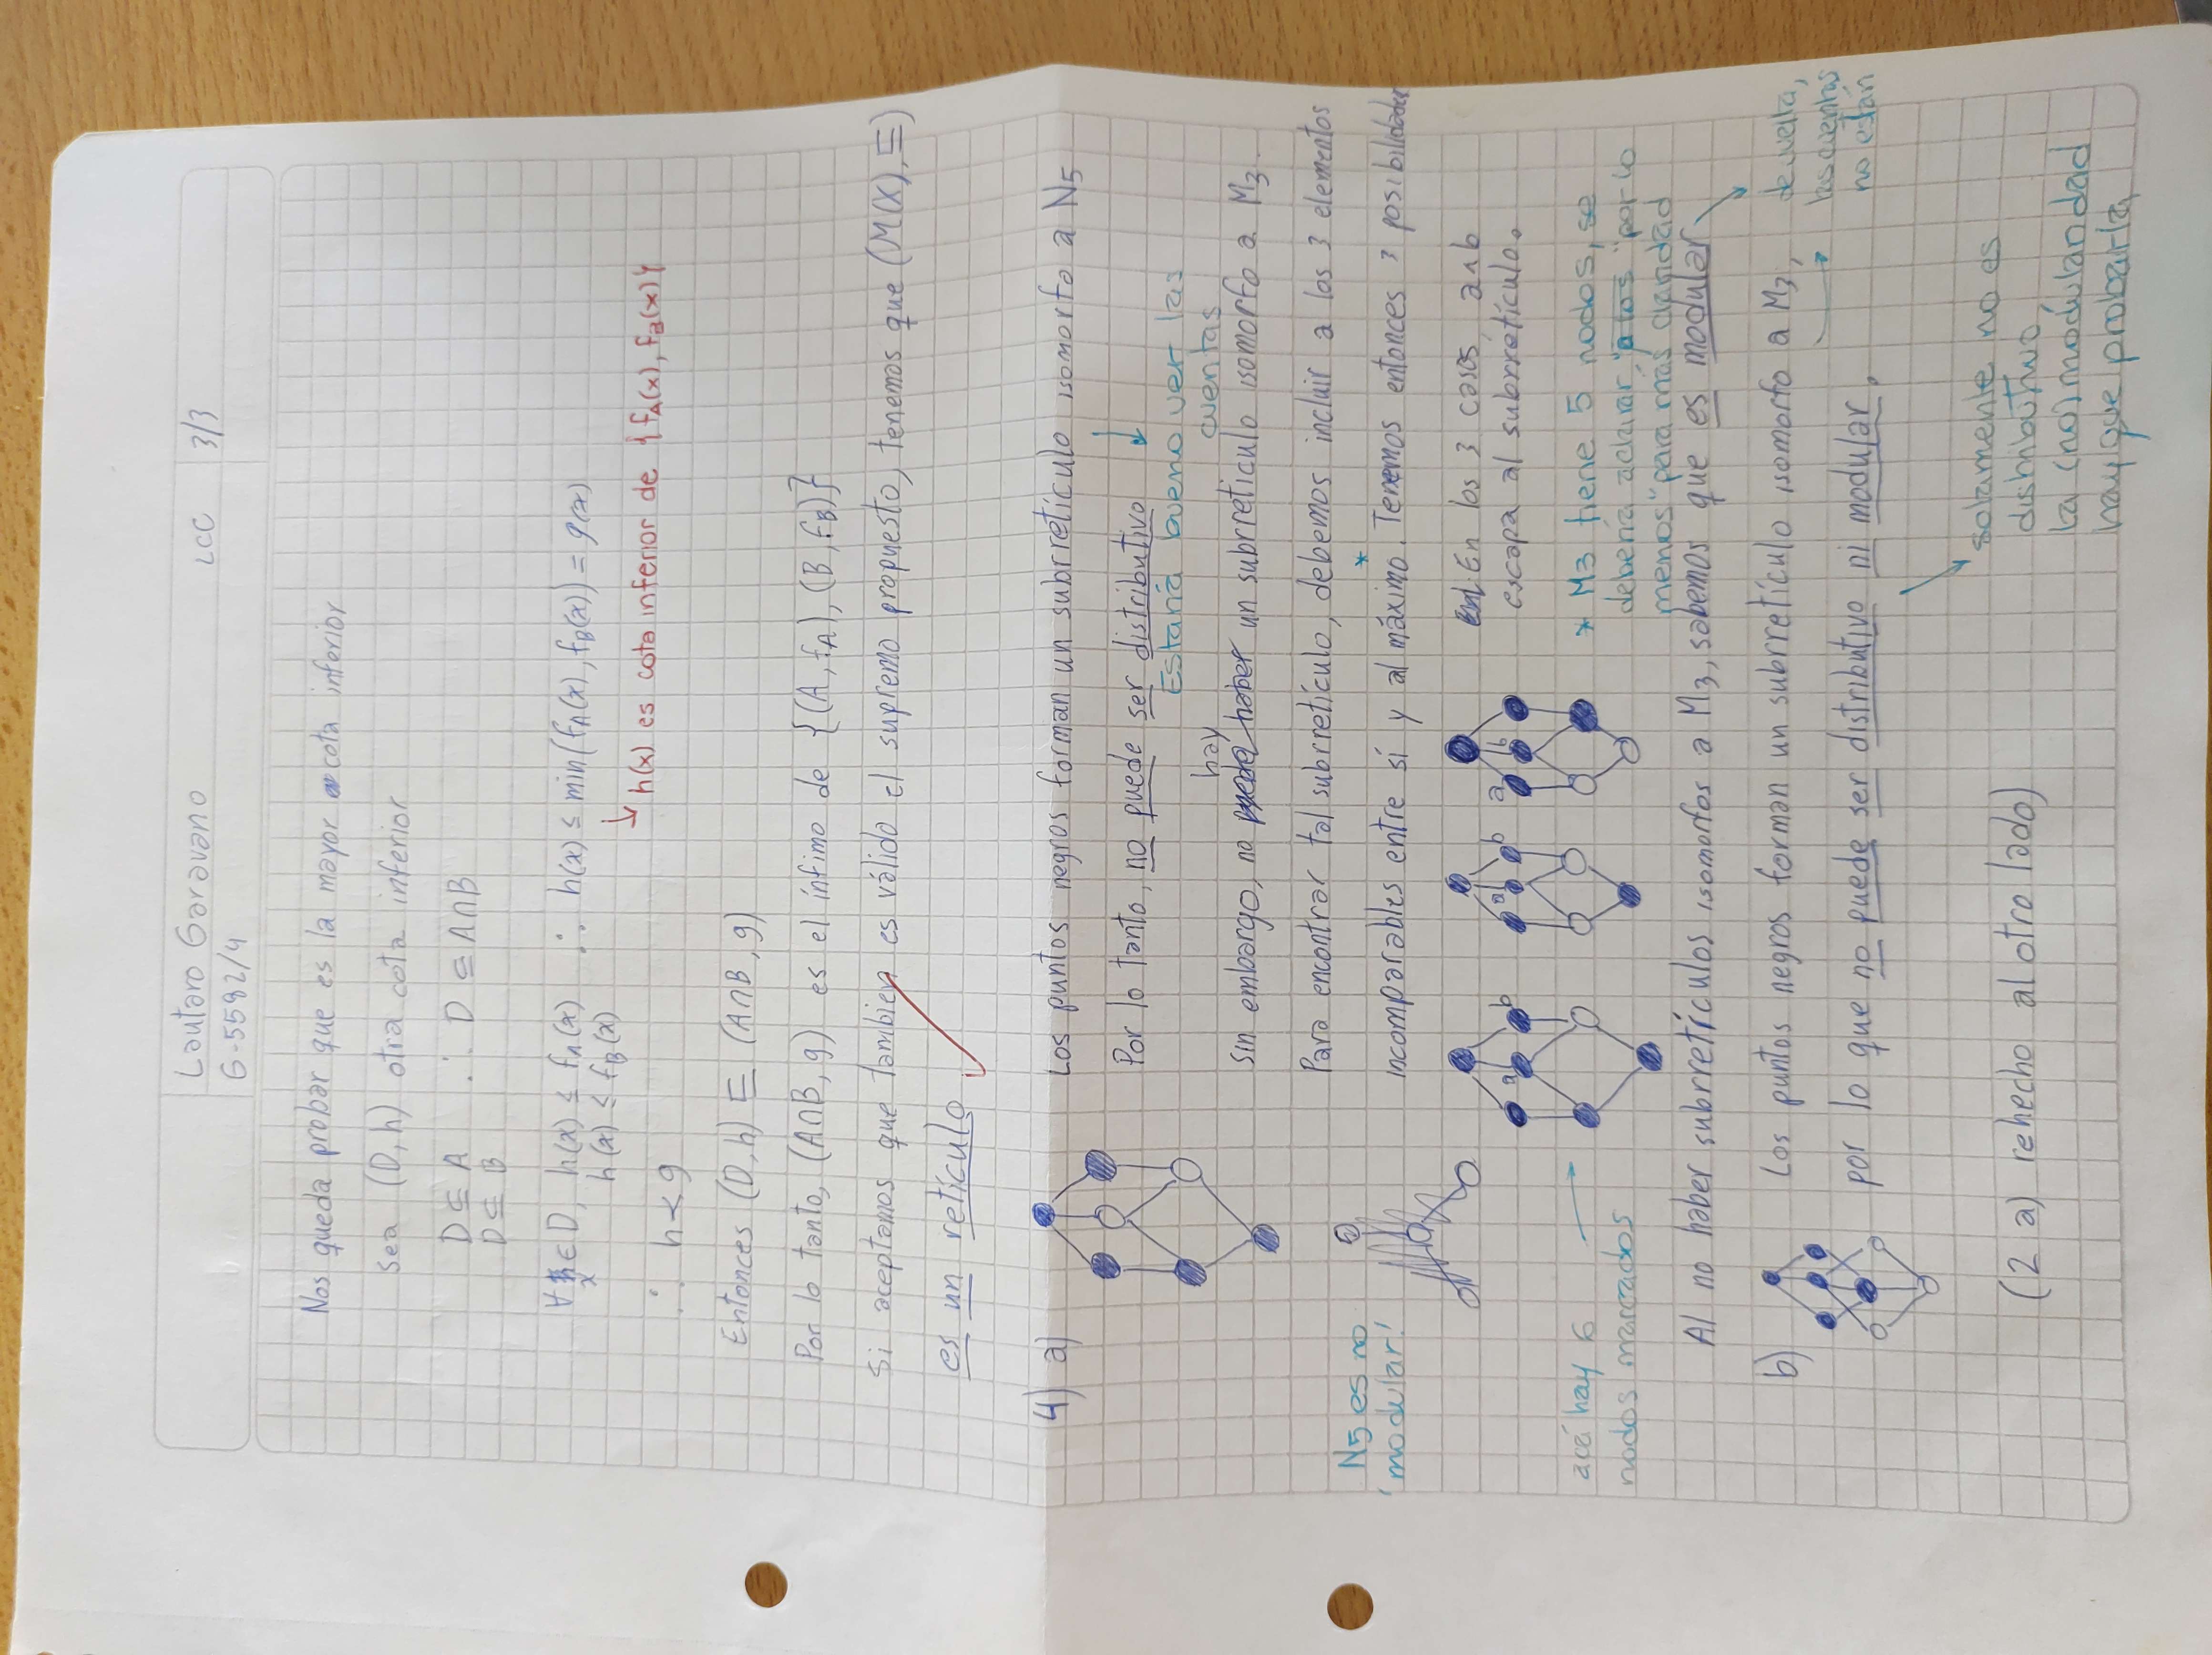 Lautaro Garavano
G-5592/4
LCC 3/3
Nos queda probar que es la mayor cota inferior
Sea (D, h) otra cota inferior
D ⊆ A
D ⊆ B
∴ D ⊆ A∩B
∀x∈D, h(x) ≤ fA(x)
h(x) ≤ fB(x)
∴ h(x) ≤ min(fA(x), fB(x)) = g(x)
↳ h(x) es cota inferior de {fA(x), fB(x)}
∴ h ≺ g
Entonces (D, h) ⊑ (A∩B, g)
Por lo tanto, (A∩B, g) es el ínfimo de {(A, fA), (B, fB)}
Si aceptamos que tambien es válido el supremo propuesto, tenemos que (M(X), ⊑)
es un retículo
4) a) Los puntos negros forman un subrretículo isomorfo a N5
Por lo tanto, no puede ser distributivo
Estaría bueno ver las
cuentas
hay
Sin embargo, no puede haber un subrretículo isomorfo a M3.
Para encontrar tal subrretículo, debemos incluir a los 3 elementos
N5 es no
modular!
incomparables entre sí y al máximo.* Tenemos entonces 3 posibilidades
a b
a b
a b
En los 3 casos, a∧b
escapa al subrretículo.
acá hay 6
nodos marcados
* M3 tiene 5 nodos, se
debería aclarar "por lo
menos" para más claridad
Al no haber subrretículos isomorfos a M3, sabemos que es modular
b) Los puntos negros forman un subrretículo isomorfo a M3,
de vuelta,
las cuentas
no están
por lo que no puede ser distributivo ni modular.
solamente no es
distributivo,
la (no) modularidad
hay que probarla
(2 a) rehecho al otro lado)